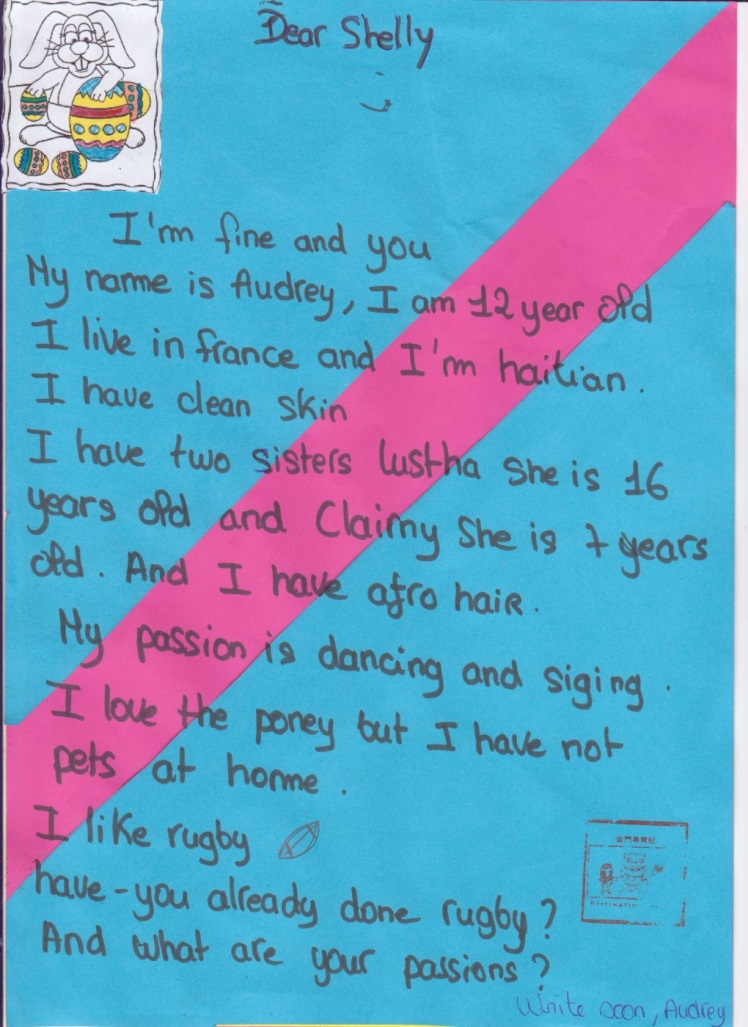 Dear Shelly
I'm fine and you
My name is Audrey, I am 12 year old
I live in france and I'm haitian.
I have clean skin
I have two sisters lustha she is 16
years old and Claimy She is 7 years
old. And I have afro hair.
My passion is dancing and siging.
I love the poney but I have not
pets at home.
I like rugby
have-you already done rugby?
And what are your passions?
Write soon, Audrey